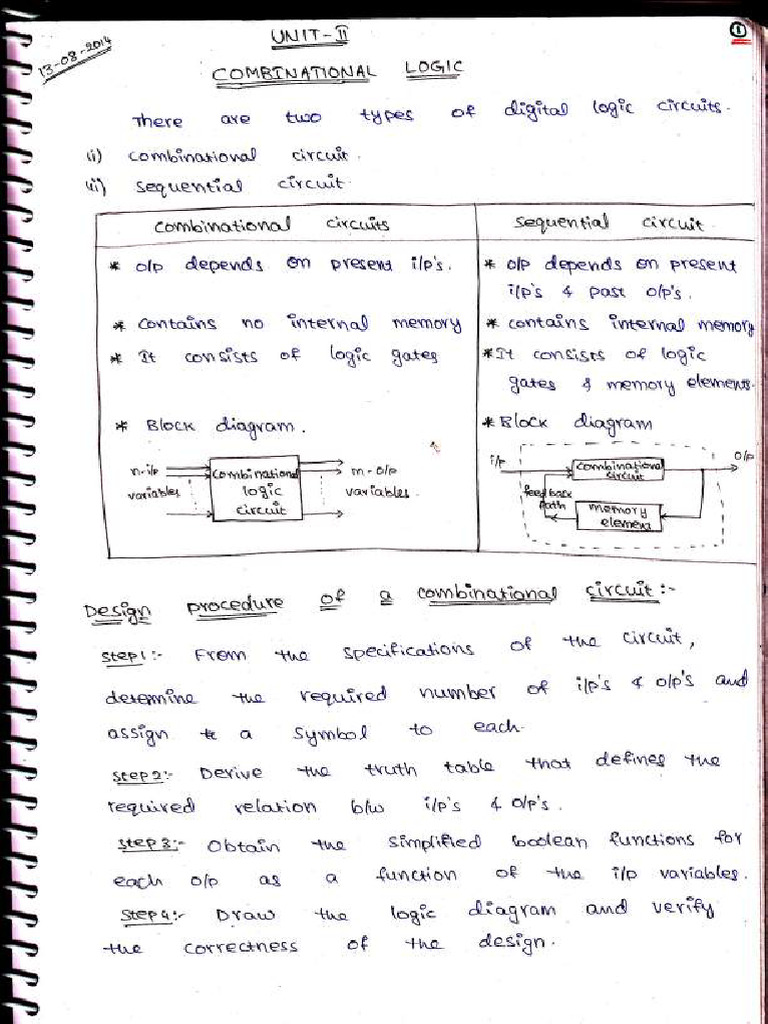 UNIT-II
①
13-08-2014
COMBINATIONAL LOGIC
There are two types of digital logic circuits.
(i) combinational circuit.
(ii) sequential circuit.
combinational circuits
* o/p depends on present i/p's.
* contains no internal memory
* It consists of logic gates
* Block diagram.
n-i/p
variables
combinational
logic
circuit
m-o/p
variables.
sequential circuit
* o/p depends on present
i/p's & past o/p's.
* contains internal memory
* It consists of logic
gates & memory elements.
* Block diagram
i/p
combinational
circuit
o/p
feedback
path
memory
element
Design procedure of a combinational circuit:-
step1:- From the specifications of the circuit,
determine the required number of i/p's & o/p's and
assign a symbol to each.
step2:- Derive the truth table that defines the
required relation b/w i/p's & o/p's.
step3:- Obtain the simplified boolean functions for
each o/p as a function of the i/p variables.
step4:- Draw the logic diagram and verify
the correctness of the design.